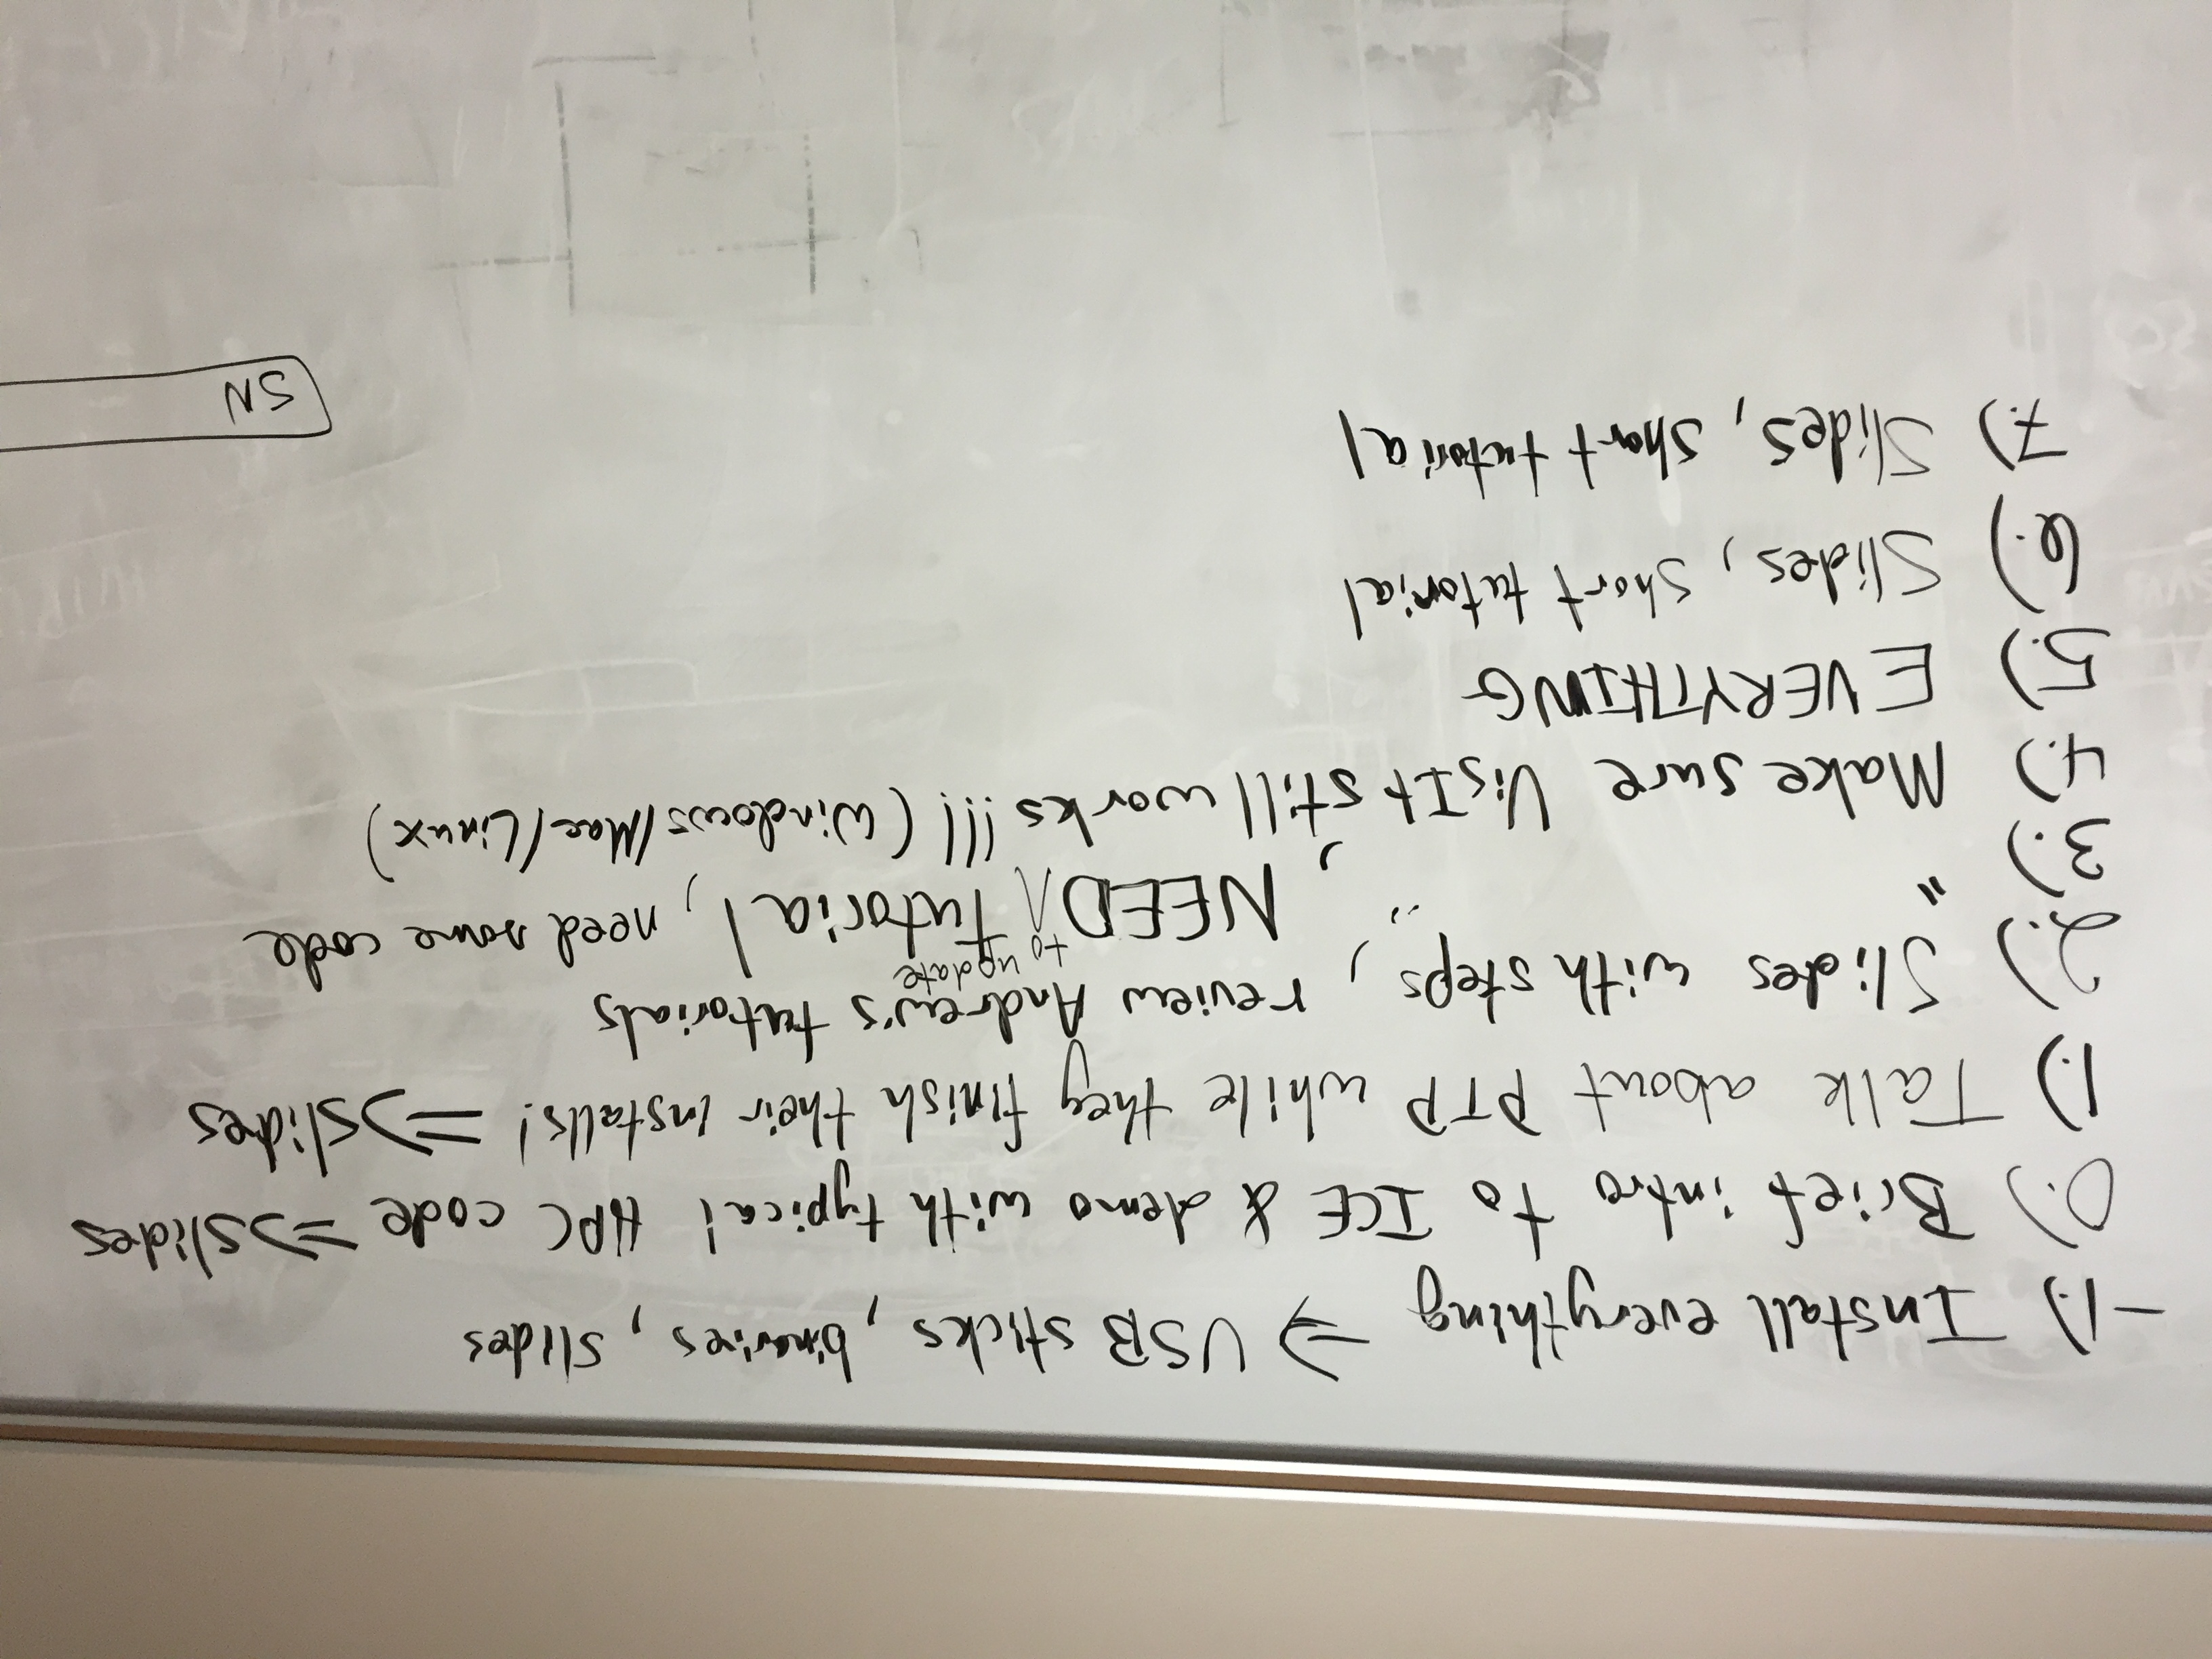 -1.) Install everything => USB sticks, binaries, slides
0.) Brief intro to ICE & demo with typical HPC code => slides
1.) Talk about PTP while they finish their installs! => slides
2.) Slides with steps, review Andrew's tutorials
3.) " " , NEED to update tutorial, need some code
4.) Make sure VisIt still works!!! (Windows/Mac/Linux)
5.) EVERYTHING
6.) Slides, short tutorial
7.) Slides, short tutorial
SN